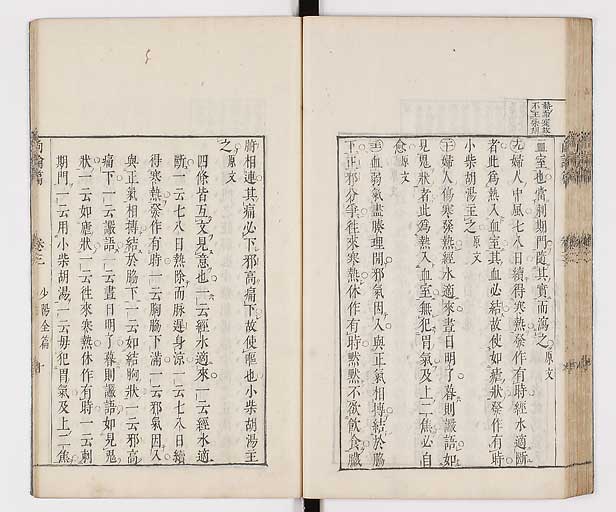 血室也當刺期門隨其實而瀉之原文
九婦人中風七八日續得寒熱發作有時經水適斷
者此爲熱入血室其血必結故使如瘧狀發作有時
小柴胡湯主之原文
十婦人傷寒發熱經水適來晝日明了暮則譫語如
見鬼狀者此爲熱入血室無犯胃氣及上二焦必自
愈原文
血弱氣盡腠理開邪氣因入與正氣相摶結於脇
下正邪分爭往來寒熱休作有時默默不欲飲食臟
腑相連其痛必下邪高痛下故使嘔也小柴胡湯主
之原文
四條皆互文見意也一云經水適來一云經水適
斷一云七八日熱除而脈遲身涼一云七八日續
得寒熱發作有時一云胸脇下滿一云邪氣因入
與正氣相摶結於脇下一云如結胸狀一云邪高
痛下一云譫語一云晝日明了暮則譫語如見鬼
狀一云如瘧狀一云往來寒熱休作有時一云刺
期門一云用小柴胡湯一云毋犯胃氣及上二焦
尚論篇 卷三 少陽全篇 十